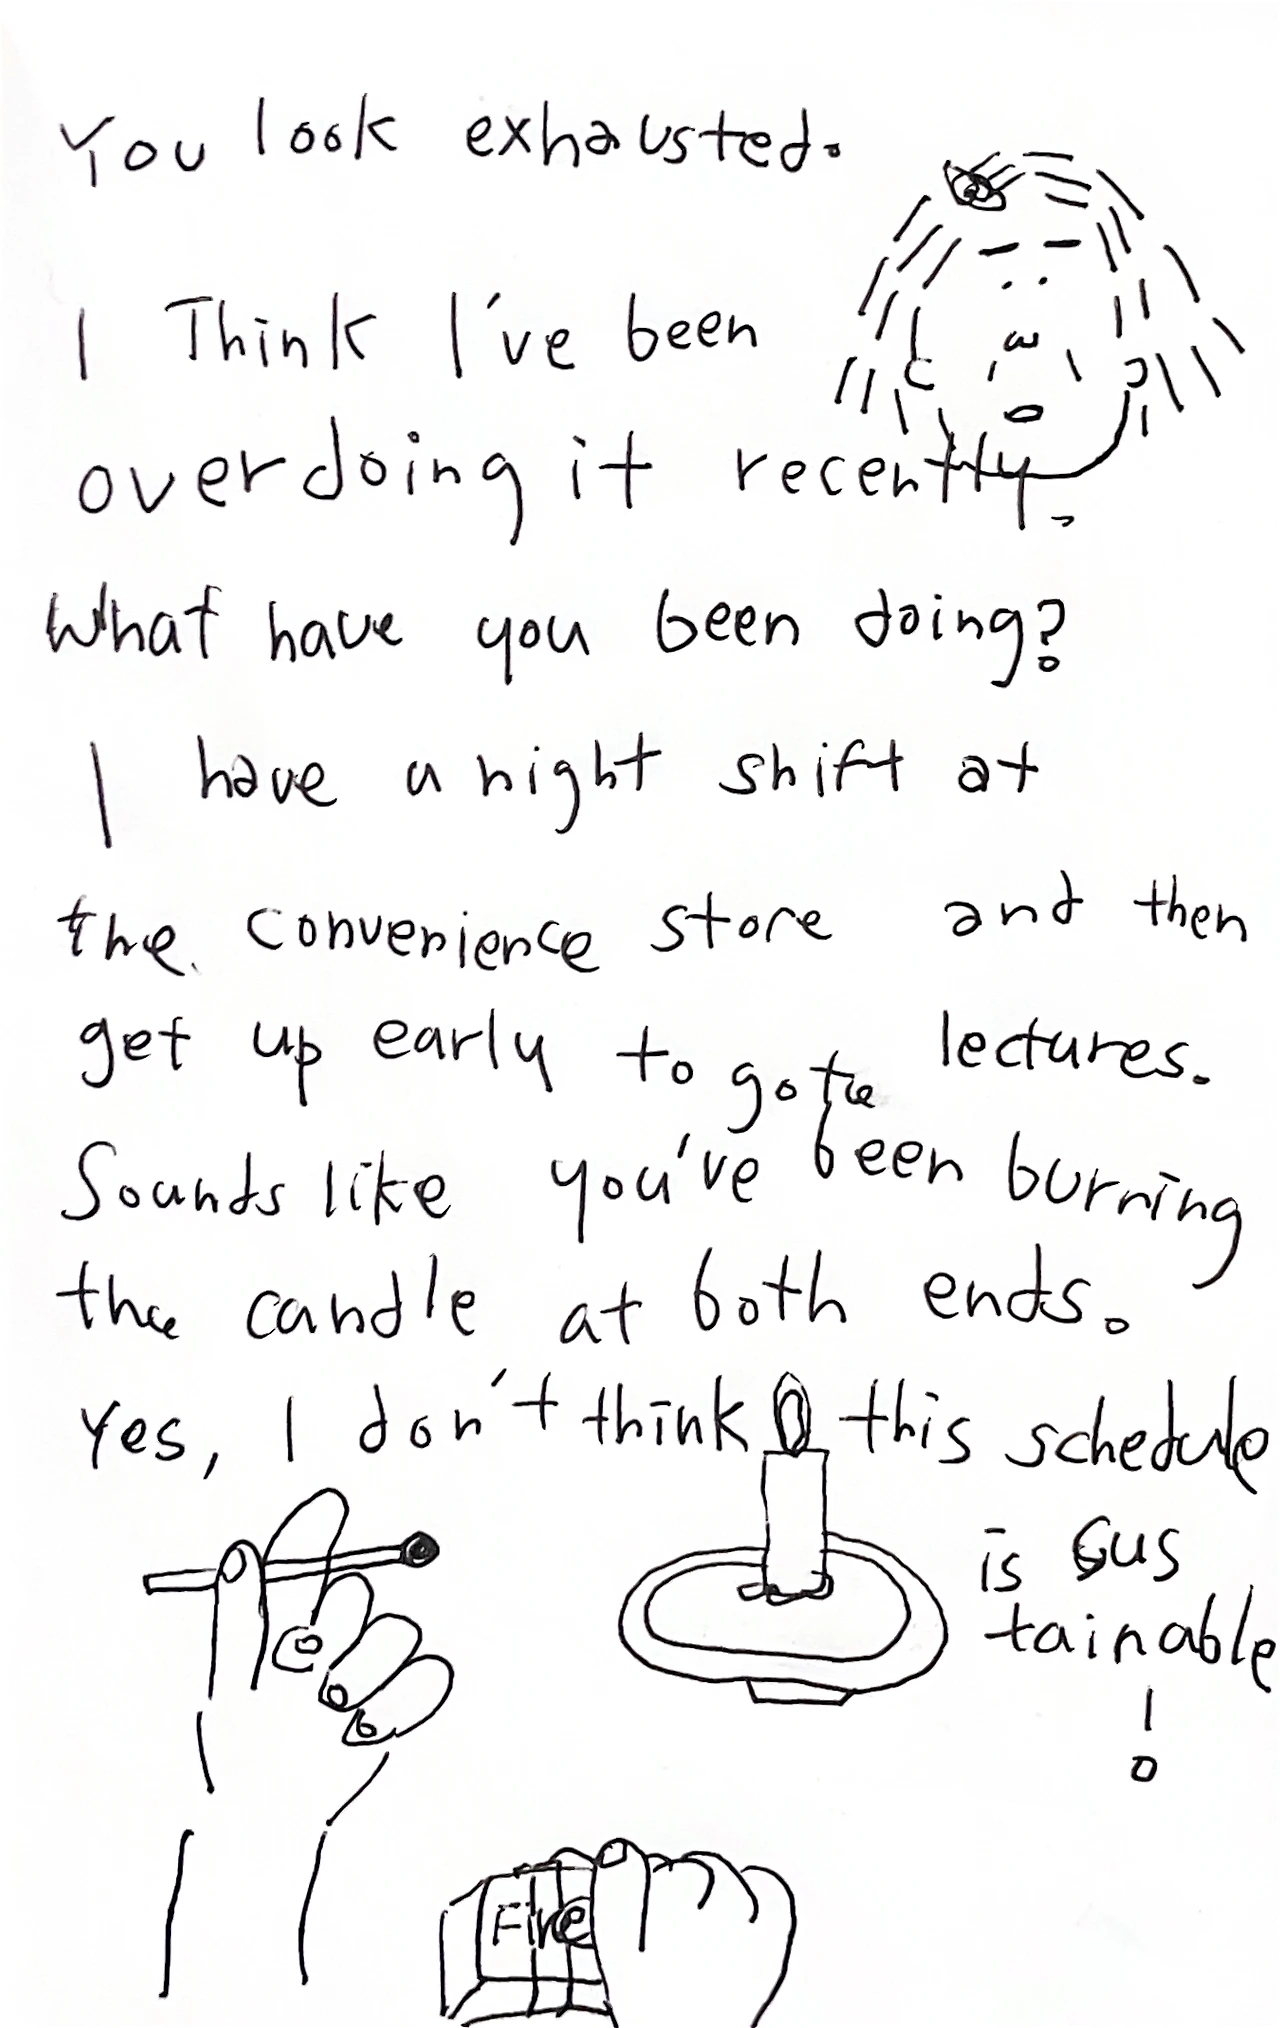 You look exhausted.
I Think I've been
overdoing it recently.
What have you been doing?
I have a night shift at
the convenience store and then
get up early to go to lectures.
Sounds like you've been burning
the candle at both ends.
Yes, I don't think this schedule
is sus
tainable
!
Fire